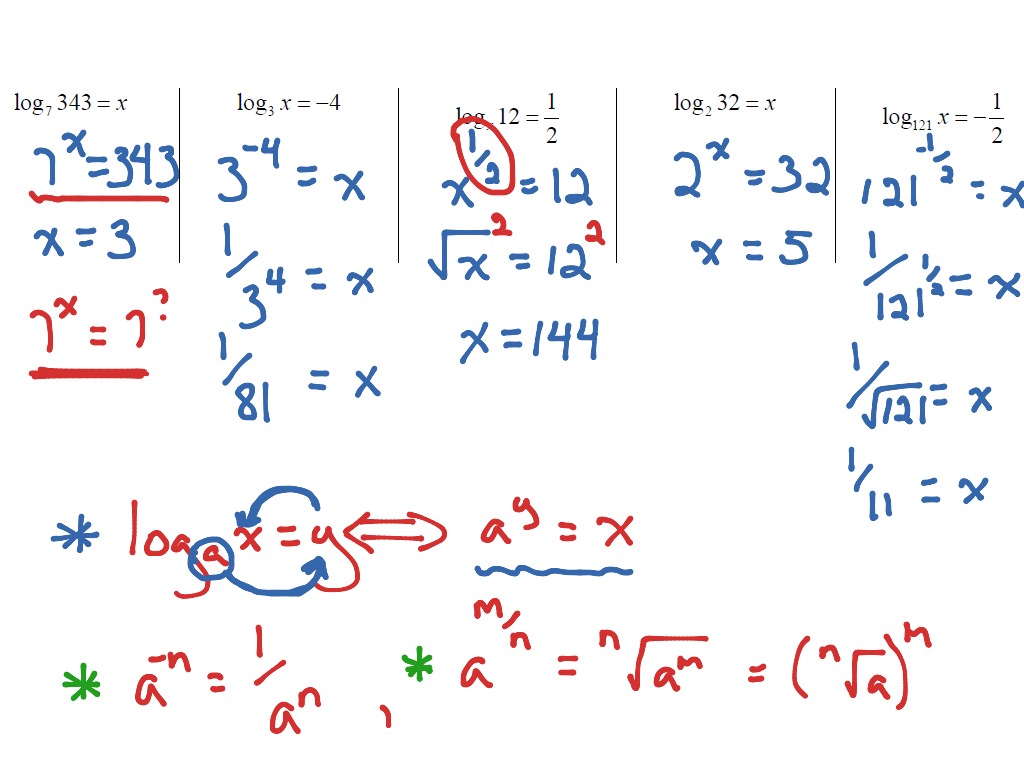 log₇ 343 = x
7ˣ = 343
x = 3
7ˣ = 7^?
log₃ x = −4
3⁻⁴ = x
1/3⁴ = x
1/81 = x
logₓ 12 = 1/2
x^(1/2) = 12
√x² = 12²
x = 144
log₂ 32 = x
2ˣ = 32
x = 5
log₁₂₁ x = −1/2
121^(-1/2) = x
1/121^(1/2) = x
1/√121 = x
1/11 = x
* logₐ x = y ⟺ a^y = x
* a⁻ⁿ = 1/aⁿ , * a^(m/n) = ⁿ√aᵐ = (ⁿ√a)ᵐ